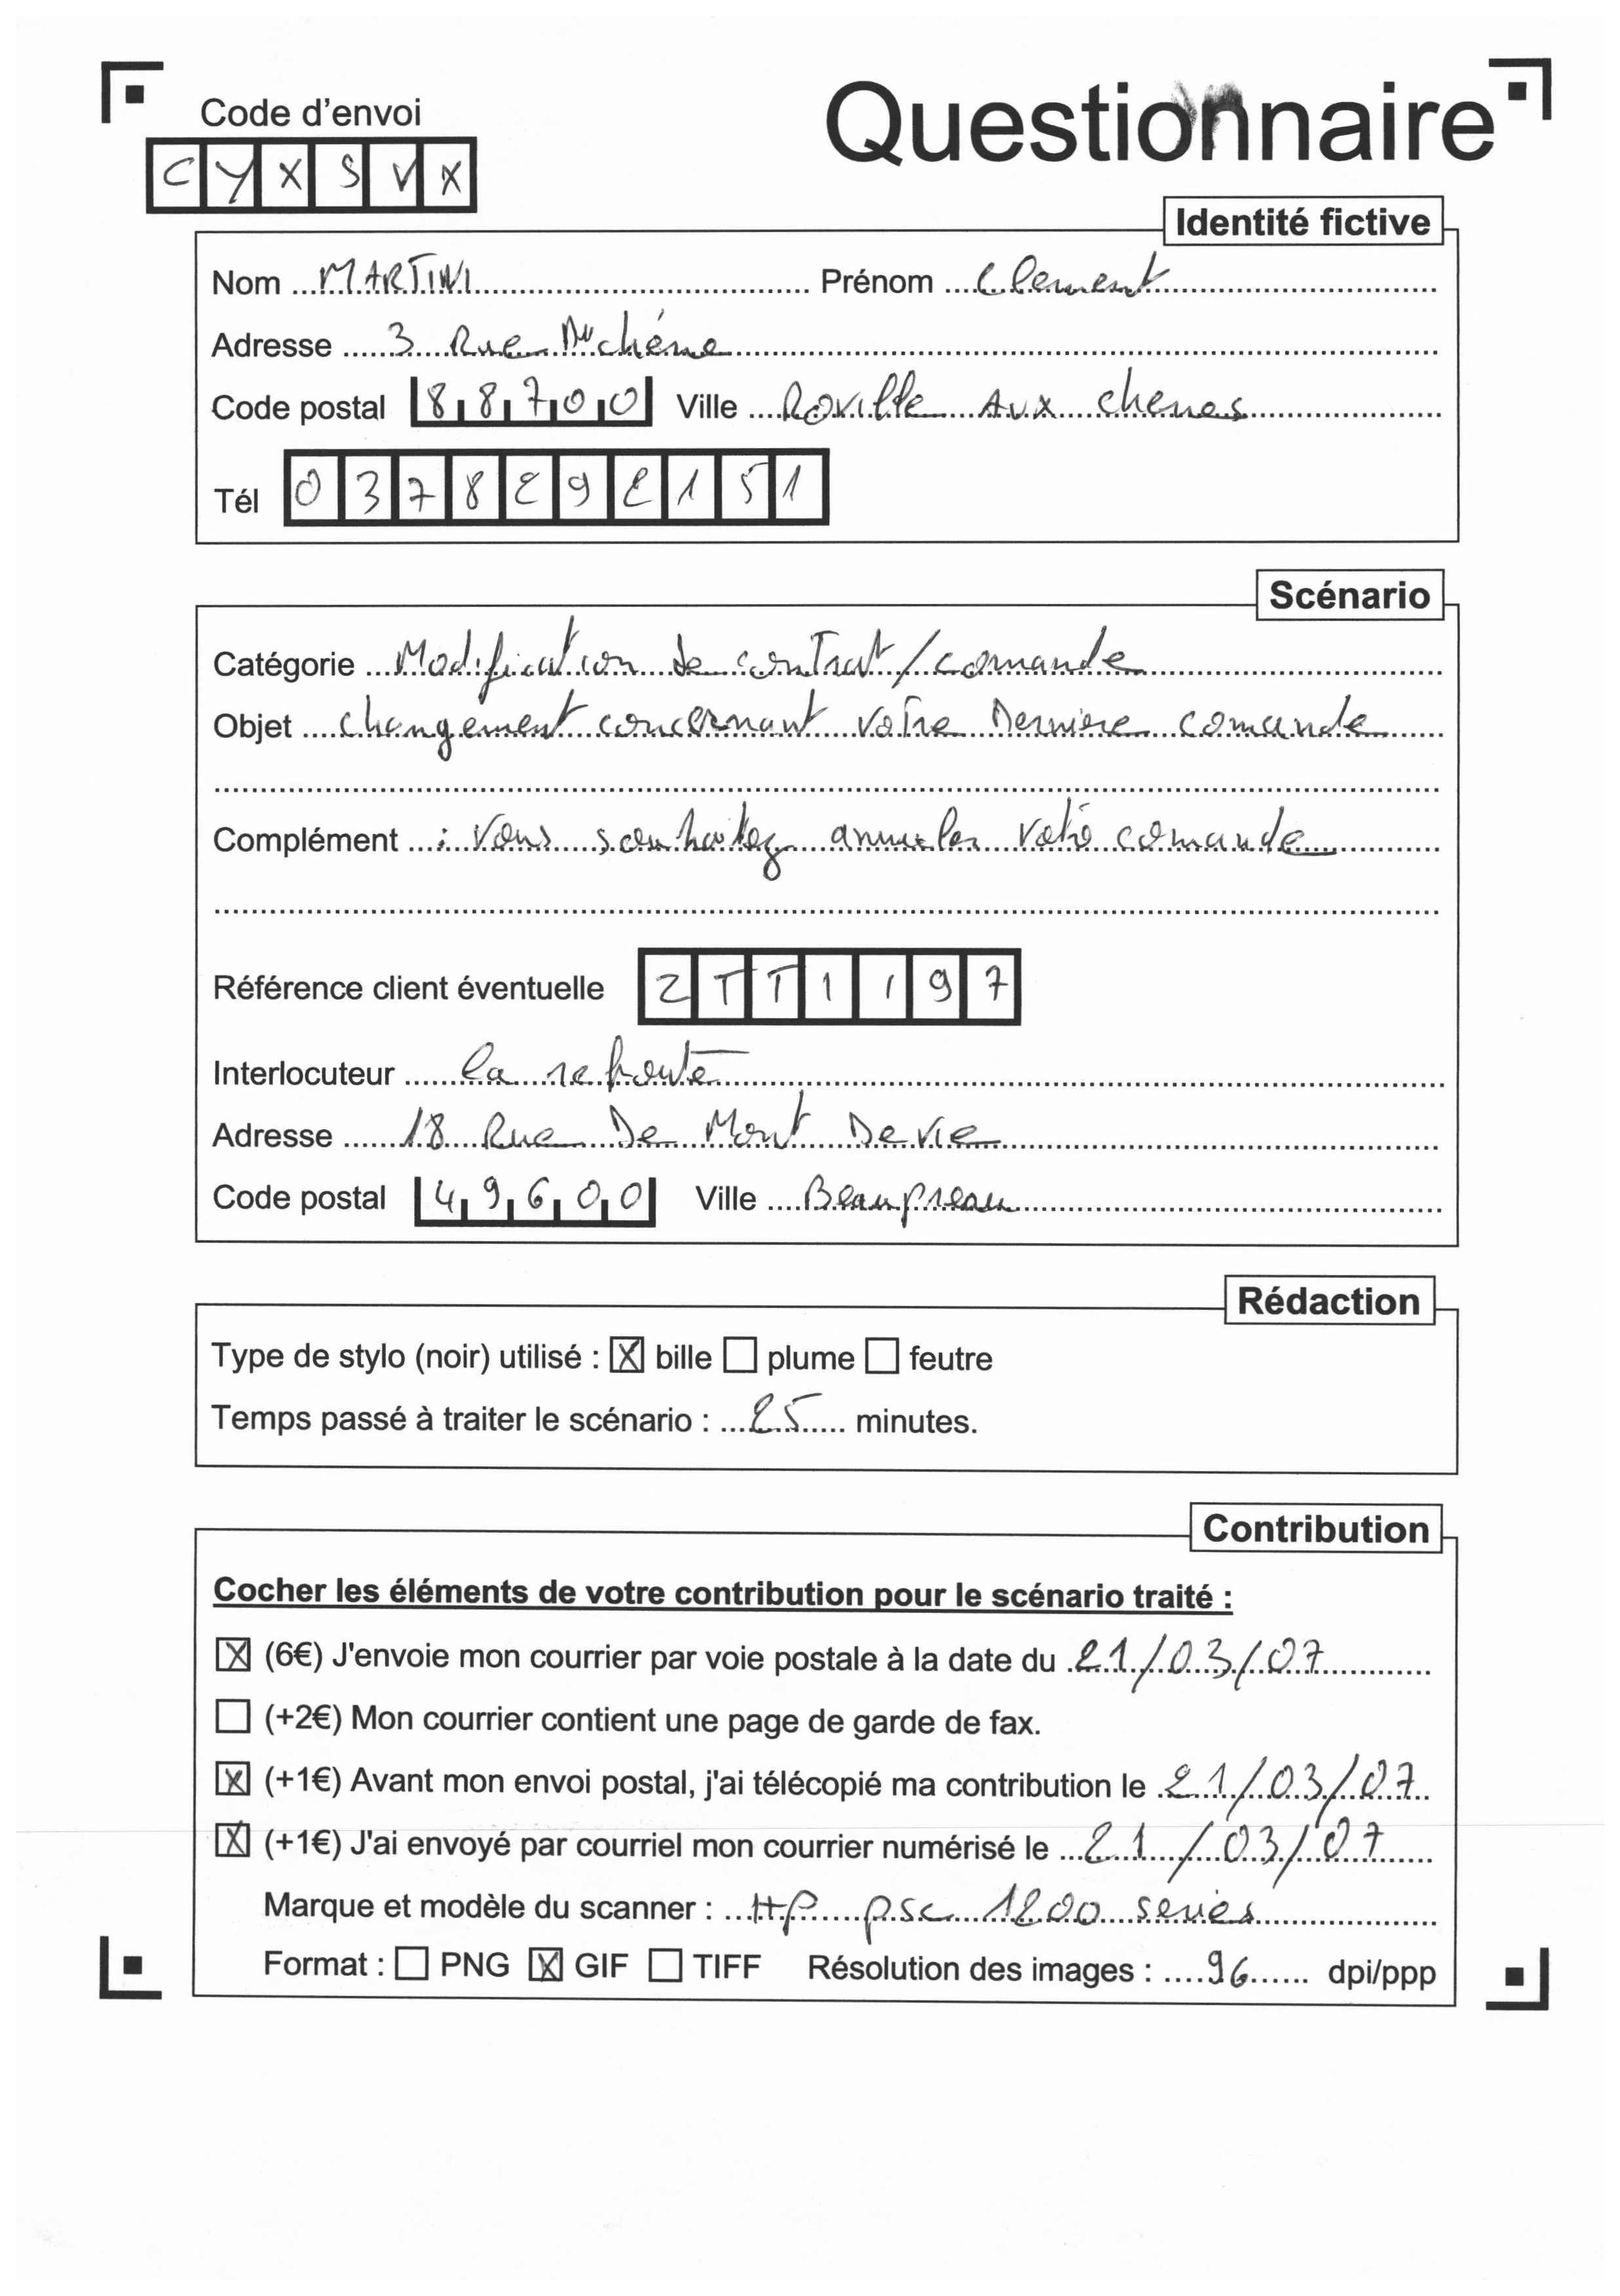 Code d'envoi
Questionnaire
C Y X S V X
Identité fictive
Nom MARTINI Prénom Clement
Adresse 3 Rue Du chéne
Code postal 88700 Ville Roville Aux chenes
Tél 0378292151
Scénario
Catégorie Modification de contrat/comande
Objet changement concernant votre Derniere comande
Complément : Vous souhaitez annuler votre comande
Référence client éventuelle ZTT1197
Interlocuteur la redoute
Adresse 18 Rue De Mont De Vie
Code postal 49600 Ville Beaupreau
Rédaction
Type de stylo (noir) utilisé : ☒ bille ☐ plume ☐ feutre
Temps passé à traiter le scénario : 25 minutes.
Contribution
Cocher les éléments de votre contribution pour le scénario traité :
☒ (6€) J'envoie mon courrier par voie postale à la date du 21/03/07
☐ (+2€) Mon courrier contient une page de garde de fax.
☒ (+1€) Avant mon envoi postal, j'ai télécopié ma contribution le 21/03/07
☒ (+1€) J'ai envoyé par courriel mon courrier numérisé le 21/03/07
Marque et modèle du scanner : HP psc 1200 series
Format : ☐ PNG ☒ GIF ☐ TIFF Résolution des images : 96 dpi/ppp